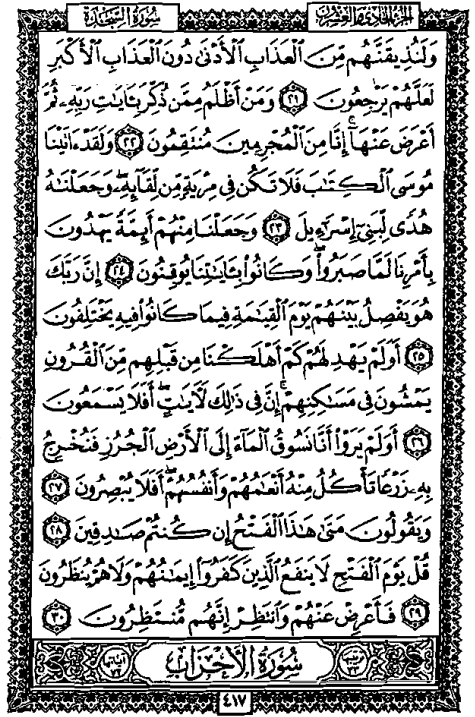 سُورَةُ السَّجْدَةِ
الجزء الحادي والعشرون
وَلَنُذِيقَنَّهُم مِّنَ ٱلْعَذَابِ ٱلْأَدْنَىٰ دُونَ ٱلْعَذَابِ ٱلْأَكْبَرِ
لَعَلَّهُمْ يَرْجِعُونَ ٢١ وَمَنْ أَظْلَمُ مِمَّن ذُكِّرَ بِـَٔايَٰتِ رَبِّهِۦ ثُمَّ
أَعْرَضَ عَنْهَآ ۚ إِنَّا مِنَ ٱلْمُجْرِمِينَ مُنتَقِمُونَ ٢٢ وَلَقَدْ ءَاتَيْنَا
مُوسَى ٱلْكِتَٰبَ فَلَا تَكُن فِى مِرْيَةٍ مِّن لِّقَآئِهِۦ ۖ وَجَعَلْنَٰهُ
هُدًى لِّبَنِىٓ إِسْرَٰٓءِيلَ ٢٣ وَجَعَلْنَا مِنْهُمْ أَئِمَّةً يَهْدُونَ
بِأَمْرِنَا لَمَّا صَبَرُوا۟ ۖ وَكَانُوا۟ بِـَٔايَٰتِنَا يُوقِنُونَ ٢٤ إِنَّ رَبَّكَ
هُوَ يَفْصِلُ بَيْنَهُمْ يَوْمَ ٱلْقِيَٰمَةِ فِيمَا كَانُوا۟ فِيهِ يَخْتَلِفُونَ
٢٥ أَوَلَمْ يَهْدِ لَهُمْ كَمْ أَهْلَكْنَا مِن قَبْلِهِم مِّنَ ٱلْقُرُونِ
يَمْشُونَ فِى مَسَٰكِنِهِمْ ۚ إِنَّ فِى ذَٰلِكَ لَـَٔايَٰتٍ ۖ أَفَلَا يَسْمَعُونَ
٢٦ أَوَلَمْ يَرَوْا۟ أَنَّا نَسُوقُ ٱلْمَآءَ إِلَى ٱلْأَرْضِ ٱلْجُرُزِ فَنُخْرِجُ
بِهِۦ زَرْعًا تَأْكُلُ مِنْهُ أَنْعَٰمُهُمْ وَأَنفُسُهُمْ ۖ أَفَلَا يُبْصِرُونَ ٢٧
وَيَقُولُونَ مَتَىٰ هَٰذَا ٱلْفَتْحُ إِن كُنتُمْ صَٰدِقِينَ ٢٨
قُلْ يَوْمَ ٱلْفَتْحِ لَا يَنفَعُ ٱلَّذِينَ كَفَرُوٓا۟ إِيمَٰنُهُمْ وَلَا هُمْ يُنظَرُونَ
٢٩ فَأَعْرِضْ عَنْهُمْ وَٱنتَظِرْ إِنَّهُم مُّنتَظِرُونَ ٣٠
سُورَةُ الأَحْزَابِ
٤١٧